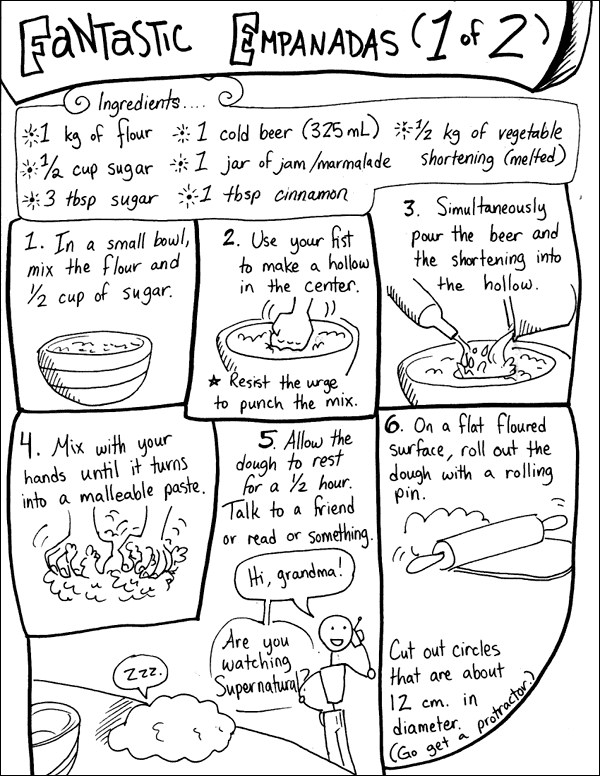 FANTASTIC EMPANADAS (1 of 2)
Ingredients....
1 kg of flour
1/2 cup sugar
3 tbsp sugar
1 cold beer (325 mL)
1 jar of jam/marmalade
1 tbsp cinnamon
1/2 kg of vegetable
shortening (melted)
1. In a small bowl,
mix the flour and
1/2 cup of sugar.
2. Use your fist
to make a hollow
in the center.
★ Resist the urge
to punch the mix.
3. Simultaneously
pour the beer and
the shortening into
the hollow.
4. Mix with your
hands until it turns
into a malleable paste.
5. Allow the
dough to rest
for a 1/2 hour.
Talk to a friend
or read or something.
Hi, grandma!
Are you
watching
Supernatural?
Zzz.
6. On a flat floured
surface, roll out the
dough with a rolling
pin.
Cut out circles
that are about
12 cm. in
diameter.
(Go get a protractor.)